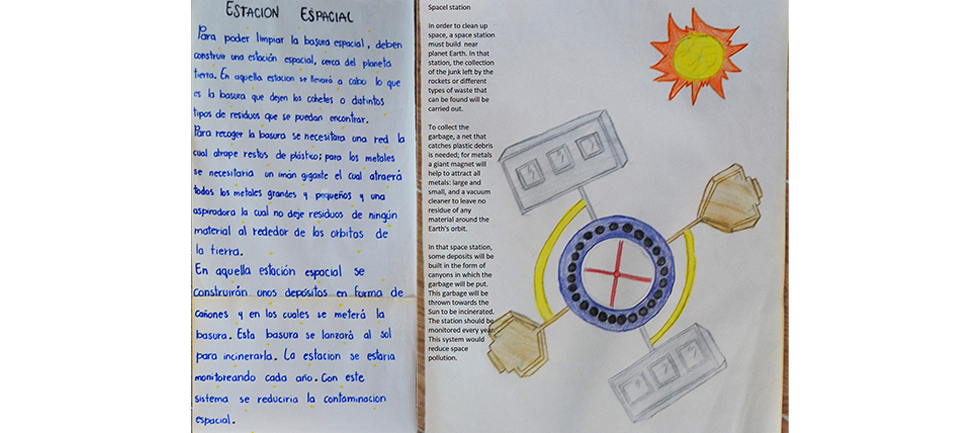 ESTACION ESPACIAL
Para poder limpiar la basura espacial, deben
construir una estación espacial, cerca del planeta
tierra. En aquella estacion se llevará a cabo lo que
es la basura que dejen los cohetes o distintos
tipos de residuos que se puedan encontrar.
Para recoger la basura se necesitara una red la
cual atrape restos de plástico; para los metales
se necesitaria un imán gigante el cual atraerá
todos los metales grandes y pequeños y una
aspiradora la cual no deje residuos de ningún
material al rededor de las orbitas de
la tierra.
En aquella estación espacial se
construirán unos depósitos en forma de
cañones y en los cuales se meterá la
basura. Esta basura se lanzará al sol
para incinerarla. La estacion se estaria
monitoreando cada año. Con este
sistema se reduciria la contaminacion
espacial.
Spacel station
In order to clean up
space, a space station
must build near
planet Earth. In that
station, the collection
of the junk left by the
rockets or different
types of waste that
can be found will be
carried out.
To collect the
garbage, a net that
catches plastic debris
is needed; for metals
a giant magnet will
help to attract all
metals: large and
small, and a vacuum
cleaner to leave no
residue of any
material around the
Earth's orbit.
In that space station,
some deposits will be
built in the form of
canyons in which the
garbage will be put.
This garbage will be
thrown towards the
Sun to be incinerated.
The station should be
monitored every year.
This system would
reduce space
pollution.